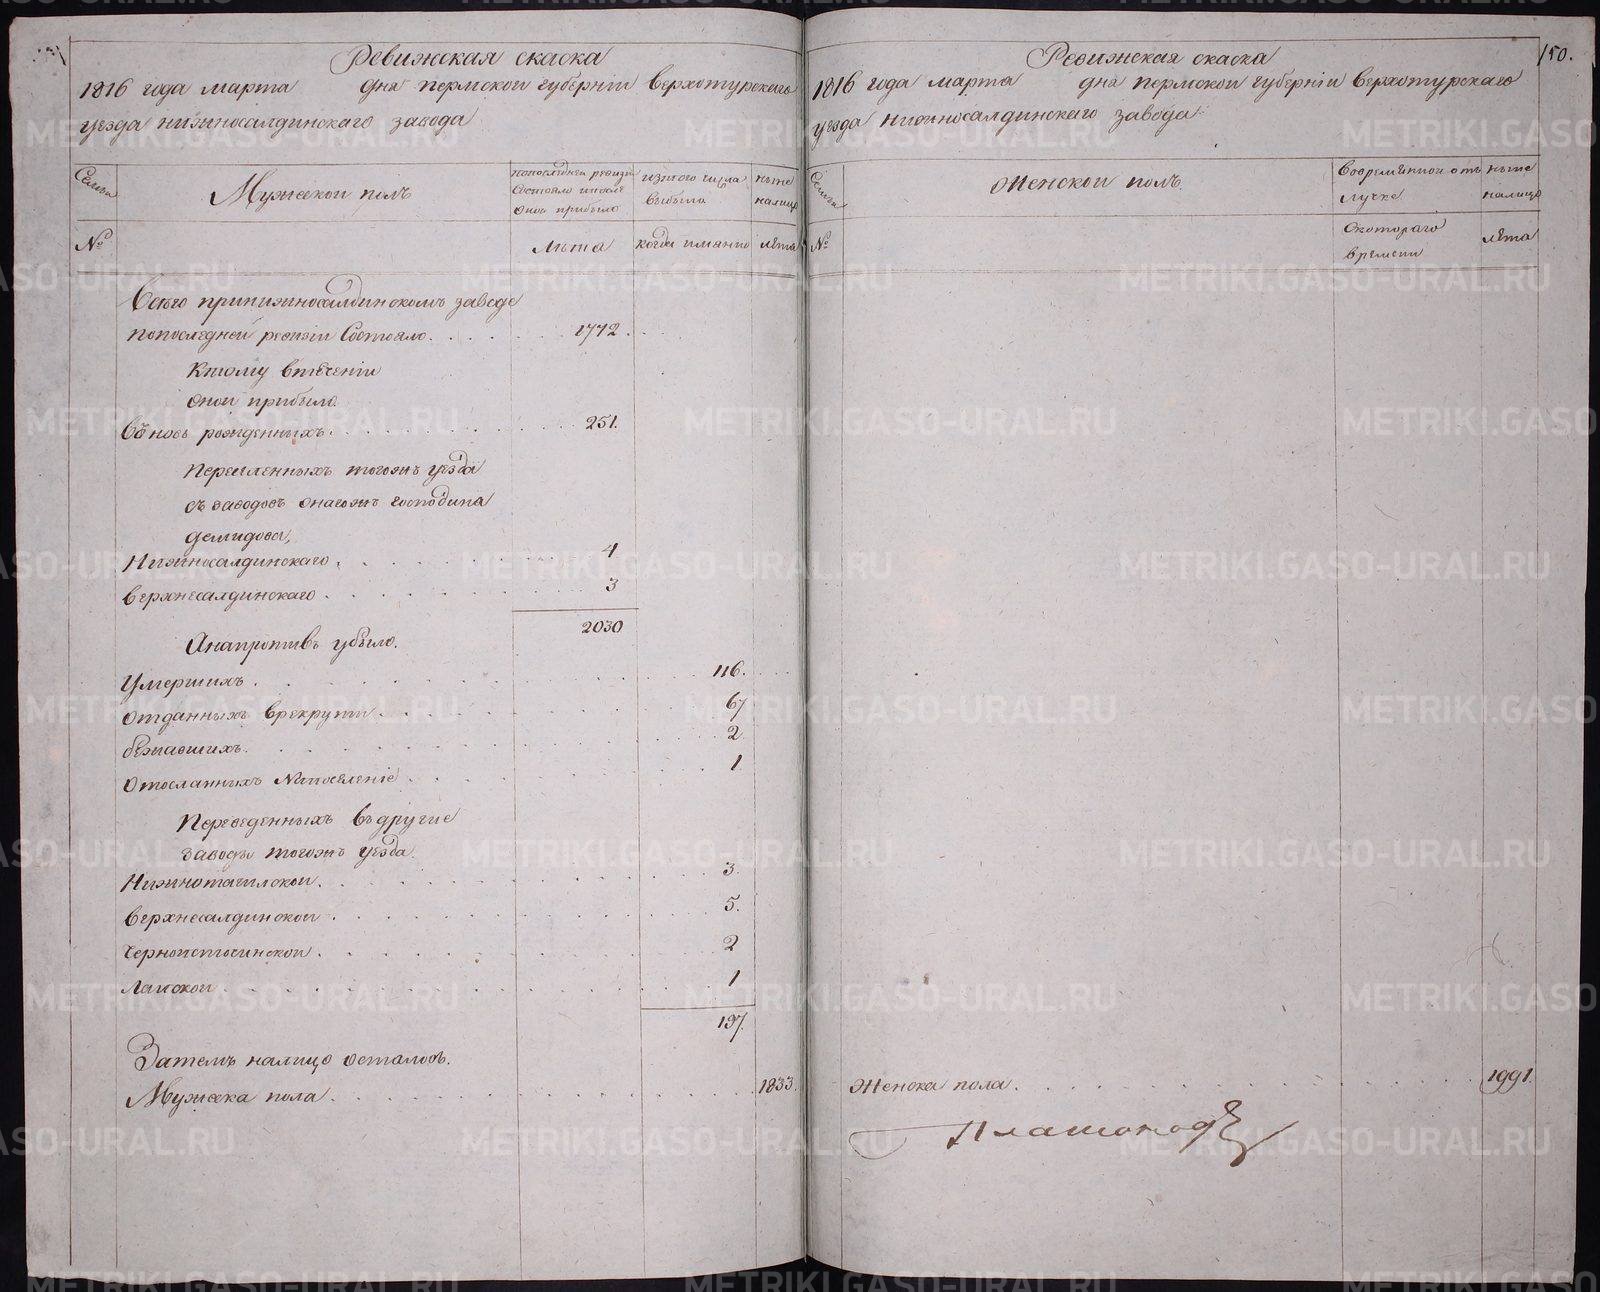 Ревижская скаска
1816 года марта дня пермской губерніи верхотурскаго
уезда нижносалдинскаго завода
Семьи
Мужеской полъ
попоследней ревизіи
состояло и после
оной прибыло
изтого числа
выбыло
ныне
налицо
№
лѣта
когда имянно
лѣта
Всего принижносалдинскомъ заводе
попоследней ревизіи Состояло 1772
Ктому втеченіи
оной прибыло
Вновь рожденныхъ 251.
Переиленныхъ тогожъ уезда
съ заводовъ онагожъ господина
демидова,
Нижносалдинскаго 4
верхнесалдинскаго 3
2030
Анапротивъ убыло.
Умершихъ 116.
отданныхъ врекруты 67
бежавшихъ 2
отосланныхъ Напоселеніе 1
Переведенныхъ въдругие
заводы тогожъ уезда.
Нижнотагилской 3.
верхнесалдинской 5.
черноисточинской 2
лайской 1
197.
Затемъ налицо осталось.
Мужеска пола 1833.
150.
Ревижская скаска
1816 года марта дня пермской губерніи верхотурскаго
уезда нижносалдинскаго завода
Семьи
Женской полъ
Вовременной отъ
лучке
ныне
налицо
№
Скотораго
времени
лѣта
Женска пола 1991.
METRIKI.GASO-URAL.RU